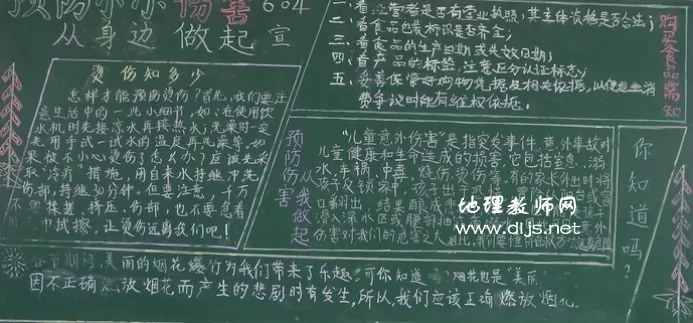 预防 伤害 604
从身边做起 宣
烫伤知多少
怎样才能预防烫伤?首先,我们要注
意生活中的一些小细节,如:在使用饮
水机时先接凉水再接热水;洗澡时一定
先用手试一试水的温度再洗澡等,如
果被不小心烫伤了怎么办?应该先采
取"冷疗"措施,用自来水持续冲洗
伤部,持续30分钟。但要注意,千万
不 揉搓、挤压、伤部,也不要急着
巾试擦,让烫伤远离我们吧!
一、看经营者是否有营业执照,其主体资格是否合法;
二、看食品包装标识是否齐全;
三、看食品的生产日期或失效日期;
四、看产品的标签,注意区分认证标志;
五、妥善保管好购物凭据及相关依据,以便发生消
费争议时能有维权依据。
购买食品需知
预防伤害
从我做起
"儿童意外伤害"是指突发事件、意外事故对
儿童健康和生命造成的损害,它包括窒息、溺
水、车祸、中毒、烧伤、烫伤等,有的家长外出时将
孩子反锁家中,孩子出于恐惧
口翻出,结果酿成
潜入深水区或
伤害对我们的危害之大
你知道吗?
地理教师网
www.dljs.net
春节期间,美丽的烟花爆竹为我们带来了乐趣,可你知道吗?烟花也是"美丽
因不正确燃放烟花而产生的悲剧时有发生,所以,我们应该正确燃放烟花。